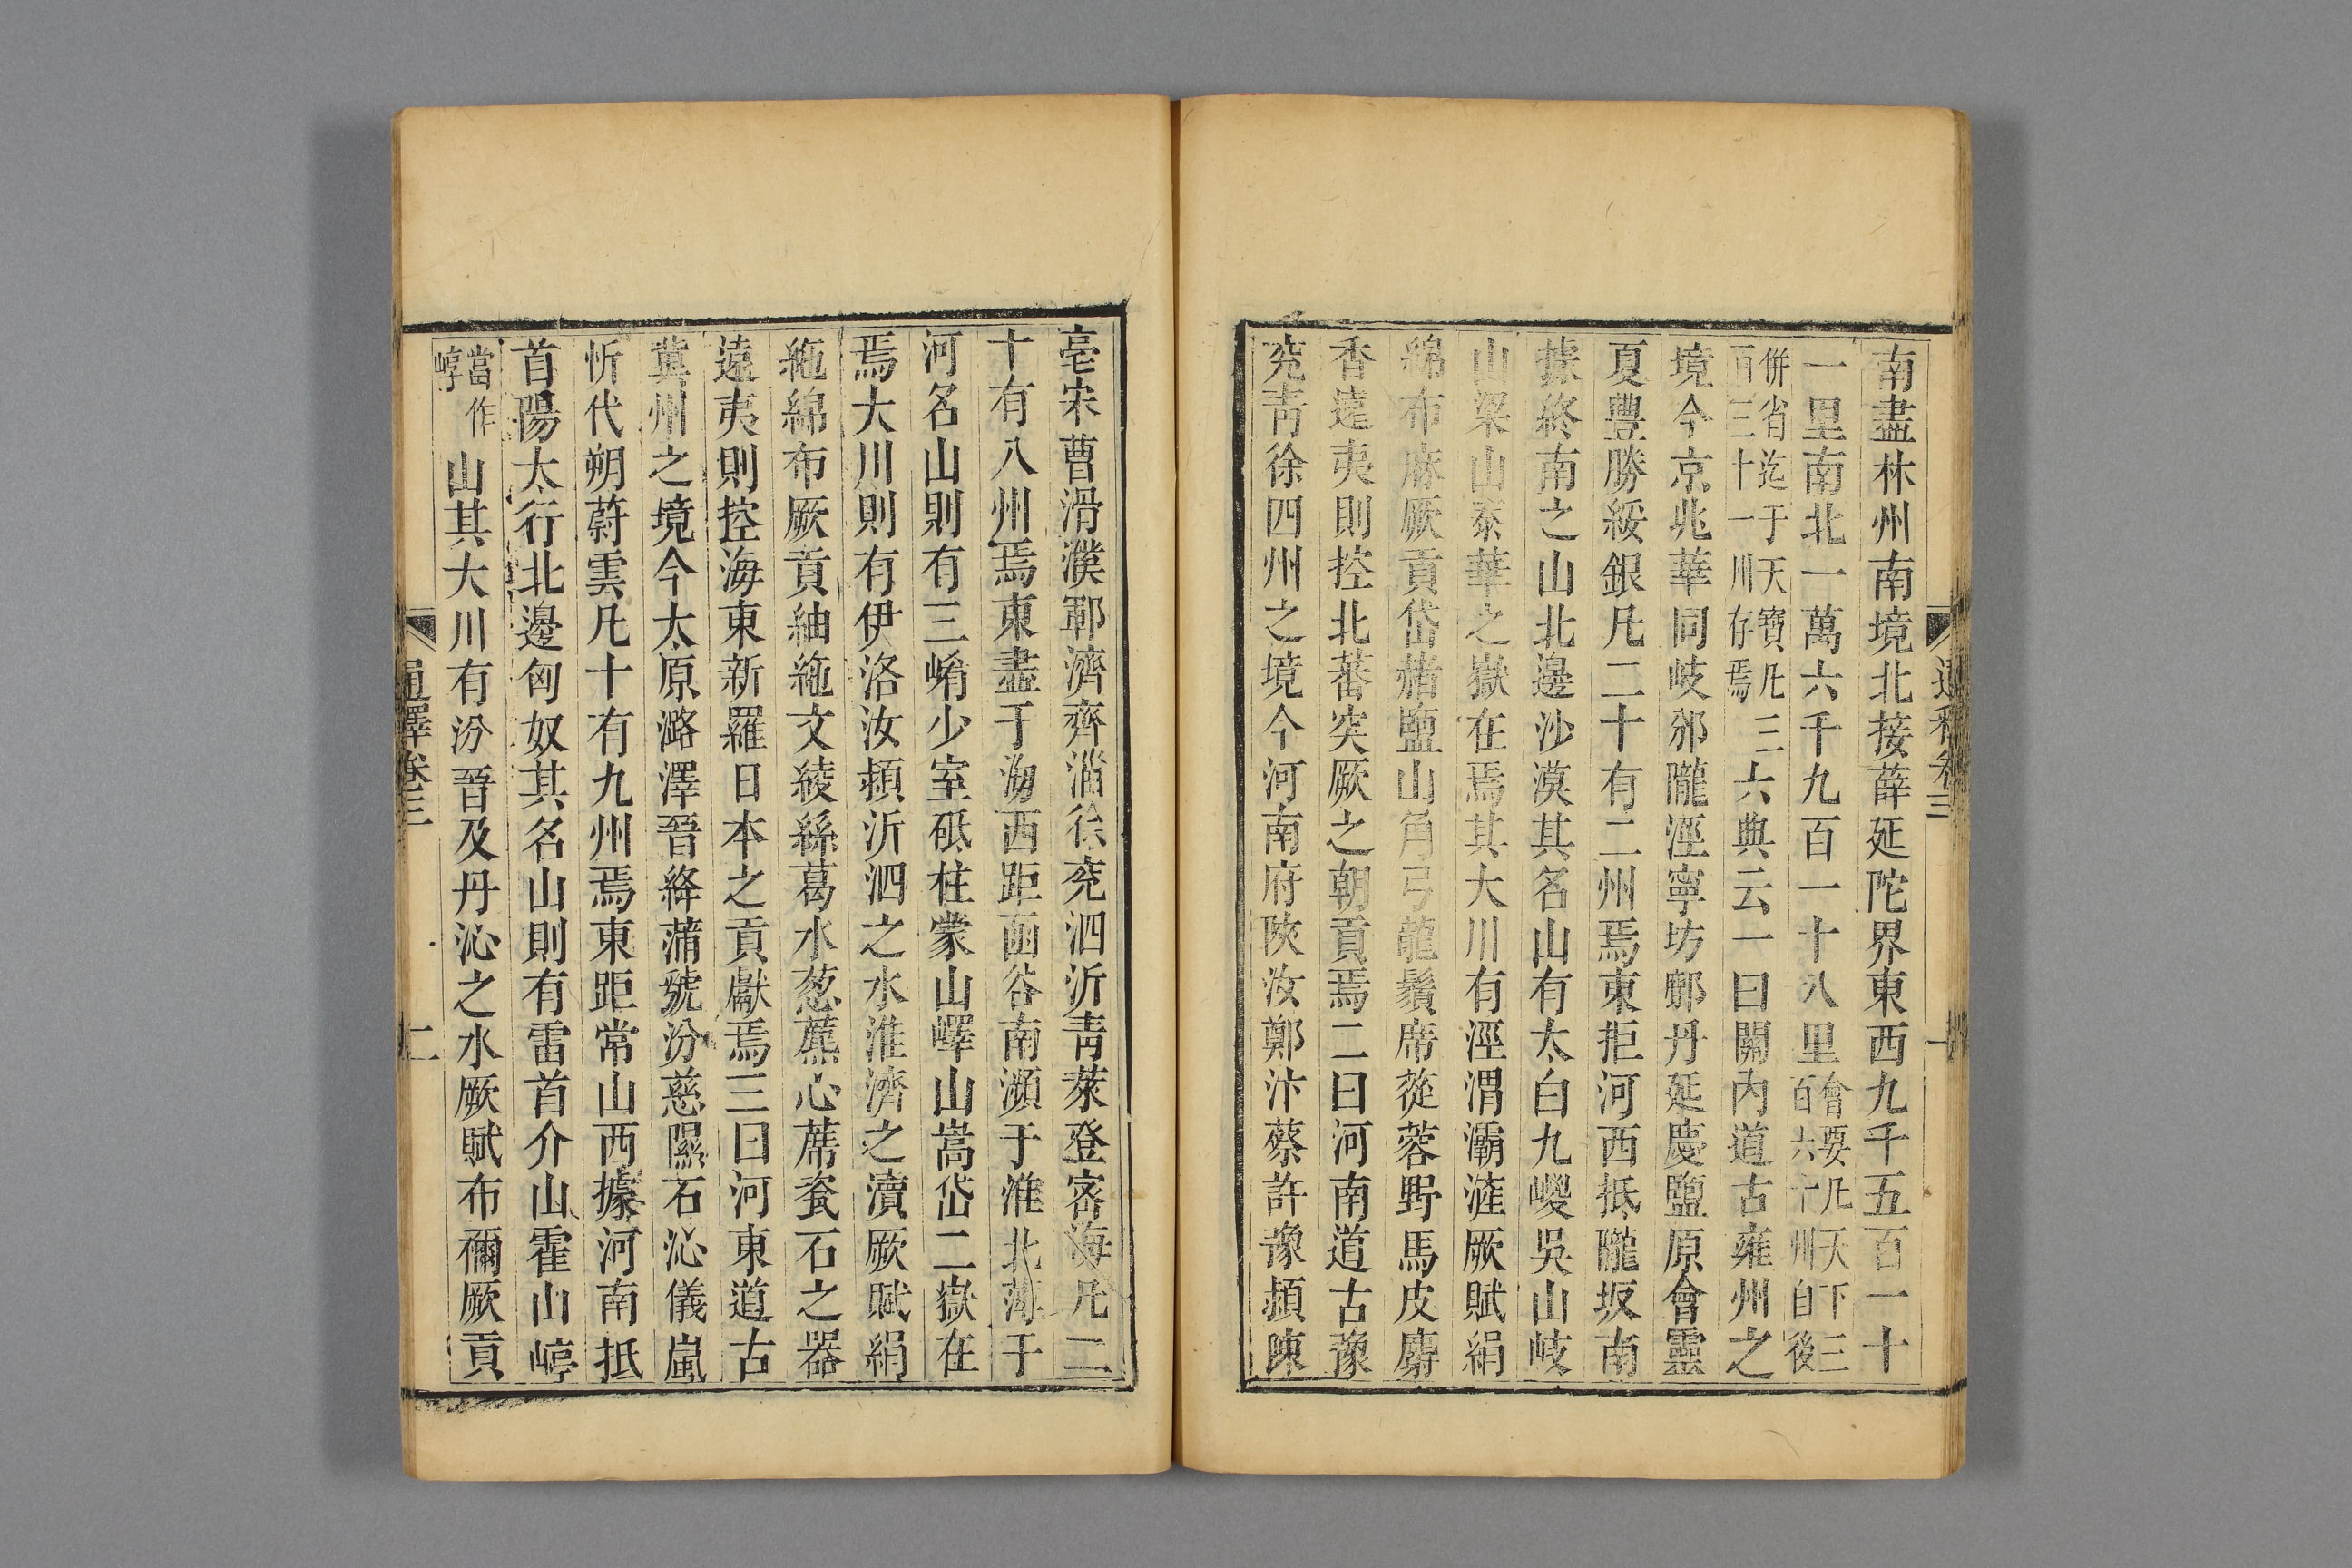 南盡林州南境北接薛延陀界東西九千五百一十
一里南北一萬六千九百一十八里會要凡天下三百六十州自後
併省迄于天寶凡三百三十一州存焉六典云一曰關內道古雍州之
境今京兆華同岐邠隴涇寧坊鄜丹延慶鹽原會靈
夏豐勝綏銀凡二十有二州焉東拒河西抵隴坂南
據終南之山北邊沙漠其名山有太白九嵕吳山岐
山梁山泰華之嶽在焉其大川有涇渭灞滻厥賦絹
綿布麻厥貢岱赭鹽山角弓龍鬚席蓯蓉野馬皮麝
香遠夷則控北蕃突厥之朝貢焉二曰河南道古豫
兖青徐四州之境今河南府陜汝鄭汴蔡許豫潁陳
亳宋曹滑濮鄆濟齊淄徐兖泗沂青萊登密海凡二
十有八州焉東盡于海西距函谷南瀕于淮北薄于
河名山則有三崤少室砥柱蒙山嶧山嵩岱二嶽在
焉大川則有伊洛汝潁沂泗之水淮濟之瀆厥賦絹
絁綿布厥貢紬絁文綾絲葛水葱藨心蓆瓷石之器
遠夷則控海東新羅日本之貢獻焉三曰河東道古
冀州之境今太原潞澤晉絳蒲虢汾慈隰石沁儀嵐
忻代朔蔚雲凡十有九州焉東距常山西據河南抵
首陽太行北邊匈奴其名山則有雷首介山霍山崞
當作崞山其大川有汾晉及丹沁之水厥賦布𥿭厥貢
通釋卷三
二